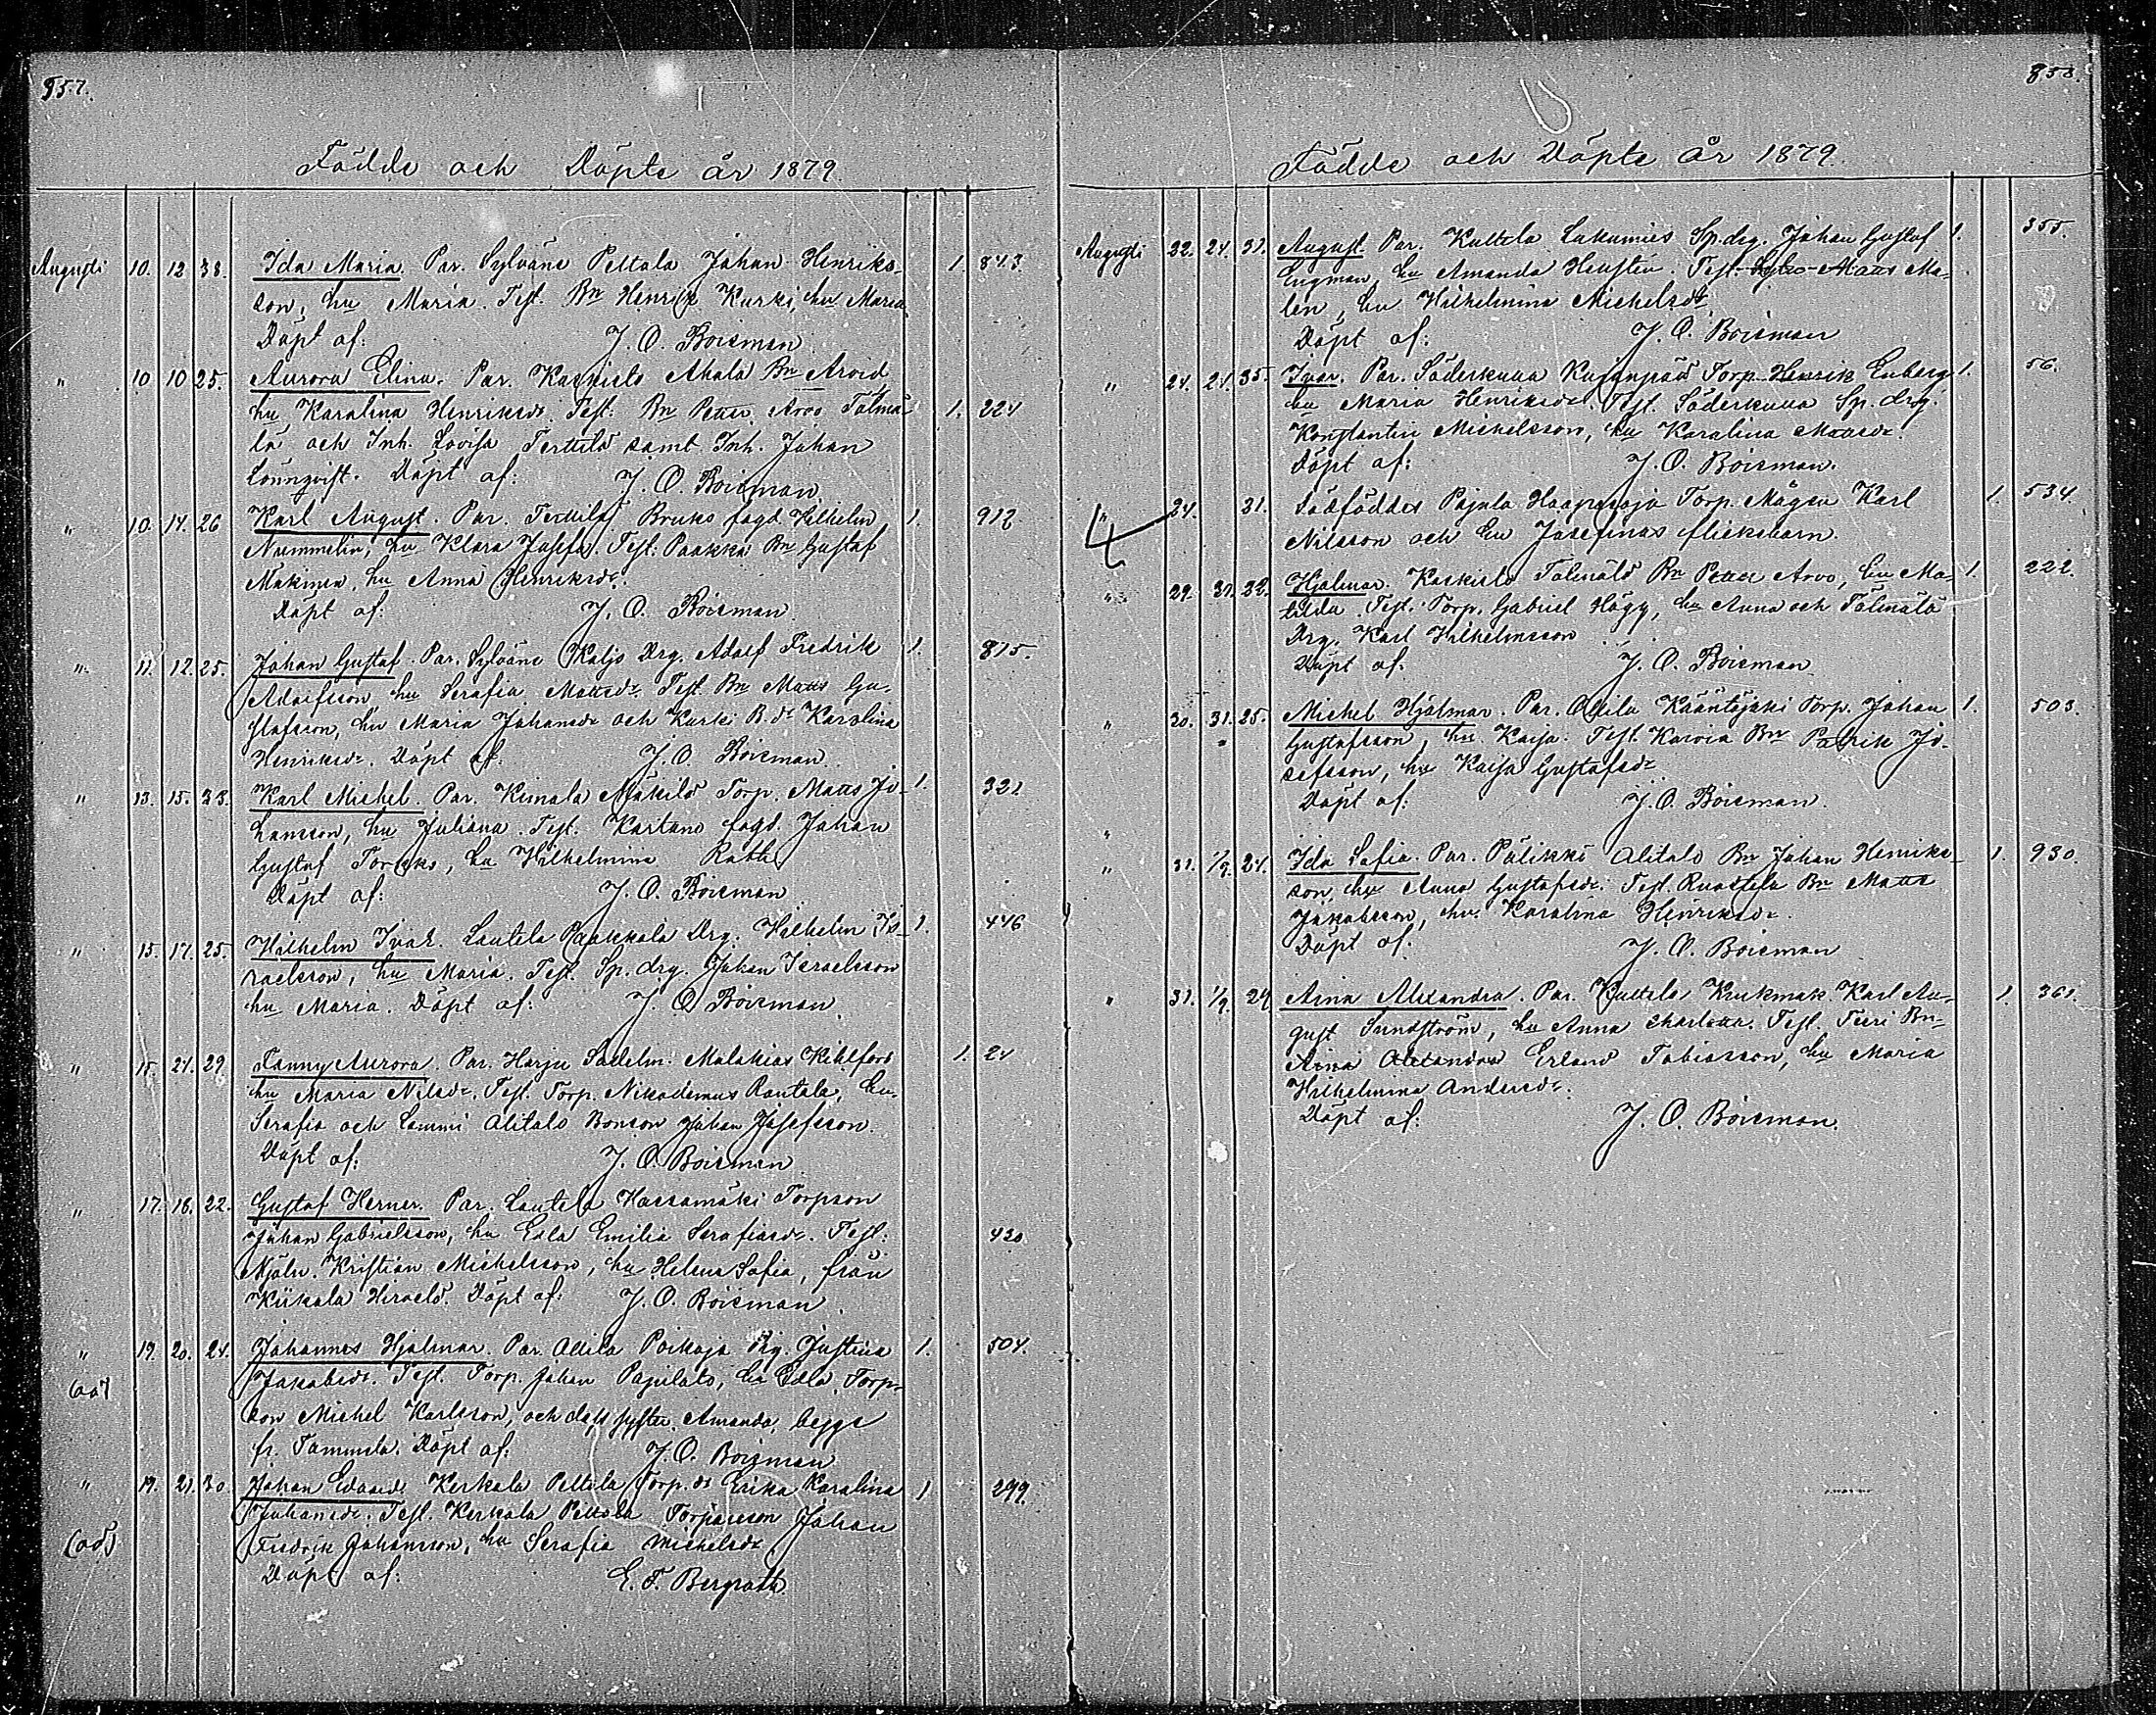 857.
Födde och Döpte år 1879.
Augusti 10. 12 38. Ida Maria. Par. Sylvänä Pettala Johan Henriks- 1. 843.
son, hu Maria. Test. Bn Henrik Kurki, hu Maria
Döpt af: J. O. Boisman
" 10 10 25. Aurora Elina. Par. Kaskisto Ahala Bn Arvid,
hu Karolina Henriksdr. Test: Bn Petter Arvo Talmä- 1. 224
lä och Inh. Lovisa Terttilä samt Inh. Johan
Lönnqvist. Döpt af: J. O. Boisman
" 10. 14. 26 Karl August. Par. Terttilä Bruks fogd. Wilhelm 1. 912
Nummelin, hu Klara Josefa. Test: Paakka Bn Gustaf
Mäkinen, hu Anna Henriksdr.
Döpt af: J. O. Boisman.
" 11. 12. 25. Johan Gustaf. Par. Sylvänä Kaljo Drg. Adolf Fredrik 1. 815.
Adolfsson, hu Serafia Mattsdr. Test. Bn Matts Gu-
stafsson, hu Maria Johansdr och Kurki B. dr Karolina
Henriksdr. Döpt af. J. O. Boisman.
" 13. 15. 33. Karl Michel. Par. Kimala Mäkilä Torp. Matts Jo- 1. 321
hansson, hu Juliana. Test. Kartano fogd. Johan
Gustaf, hu Wilhelmina
Döpt af: J. O. Boisman
" 15. 17. 25. Wilhelm Ivar. Lautela Paakkala Drg. Wilhelm Is- 1. 446
raelsson, hu Maria. Test. Sp. drg. Johan Israelsson
hu Maria. Döpt af: J. O. Boisman.
" 15. 21. 29. Fanny Aurora. Par. Harju Sadelm. Malakias Kihlfors 1. 21
hu Maria Nilsdr. Test. Torp. Nikodemus Rantala, hu
Serafia och Lammi Alitalo Bonson Johan Josefsson.
Döpt af: J. O. Boisman
" 17. 18. 22. Gustaf Werner. Par. Lautela Hassamäki Torpson
Johan Gabrielsson, hu Edla Emilia Serafiasdr. Test: 430
Mjöln. Kristian Michelsson, hu Helena Sofia, från
Kiikala Hirvelä. Döpt af: J. O. Boisman.
" 19. 20. 24. Johannes Hjalmar. Par. Ollila Poikoja Pig. Justina 1. 504.
Jakobsdr. Test. Torp. Johan Pajulato, hu Edla, Torp-
son Michel Karlsson, och dess syster Amanda, begge
fr. Tammela. Döpt af: J. O. Boisman
" 19. 21. 30. Johan Edvard. Kerkola Pettilä Torp. dr Erika Karolina 1 299.
Johansdr. Test. Kerkola Pettilä Torparson Johan
Fredrik Johansson, hu Serafia Michelsdr
Döpt af: E. F. Bergroth
858.
Födde och Döpte år 1879.
Augusti 22. 24. 31. August. Par. Kultela Lakumies Sp. drg. Johan Gustaf 1. 355.
Engman, hu Amanda Henstén. Test. Matts Ma-
lén, hu Wilhelmina Michelsdr
Döpt af: J. O. Boisman
" 24. 24. 35. Ivar. Par. Söderkulla Kujanpää Torp. Henrik Enberg 1. 56.
hu Maria Henriksdr. Test. Söderkulla Sp. drg.
Konstantin Michelsson, hu Karolina Mattsdr.
Döpt af: J. O. Boisman.
4 " 24. 31. Dödföddes Pajula Haapasoja Torp. Mågen Karl 1. 534.
Nilsson och hu Josefinas flickebarn.
" 29. 31. 32. Hjalmar. Kaskisto Talmälä Bn Petter Arvo, hu Ma- 1. 222.
tilda. Test. Torp. Gabriel Hägg, hu Anna och Talmälä
Drg. Karl Wilhelmsson
Döpt af: J. O. Boisman
" 30. 31. 25. Michel Hjalmar. Par. Ollila Kääntäjäki Torp. Johan 1. 503.
Gustafsson, hu Kaisa. Test. Karvia Bn Patrik Jo-
sefsson, hu Kaisa Gustafsdr
Döpt af: J. O. Boisman.
" 31. 1/9. 24. Ida Sofia. Par. Palikkö Alitalo Bn Johan Henriks- 1. 930.
son, hu Anna Gustafsdr. Test. Ruostela Bn Matts
Jakobsson, hu Karolina Henriksdr.
Döpt af. J. O. Boisman
" 31. 1/9. 24 Aina Alexandra. Par. Kultela Krukmak. Karl Au- 1. 361.
gust Sundström, hu Anna Charlotta. Test. Teeri Bn
Aina Alexandra Erland Tobiasson, hu Maria
Wilhelmina Andersdr.
Döpt af: J. O. Boisman.